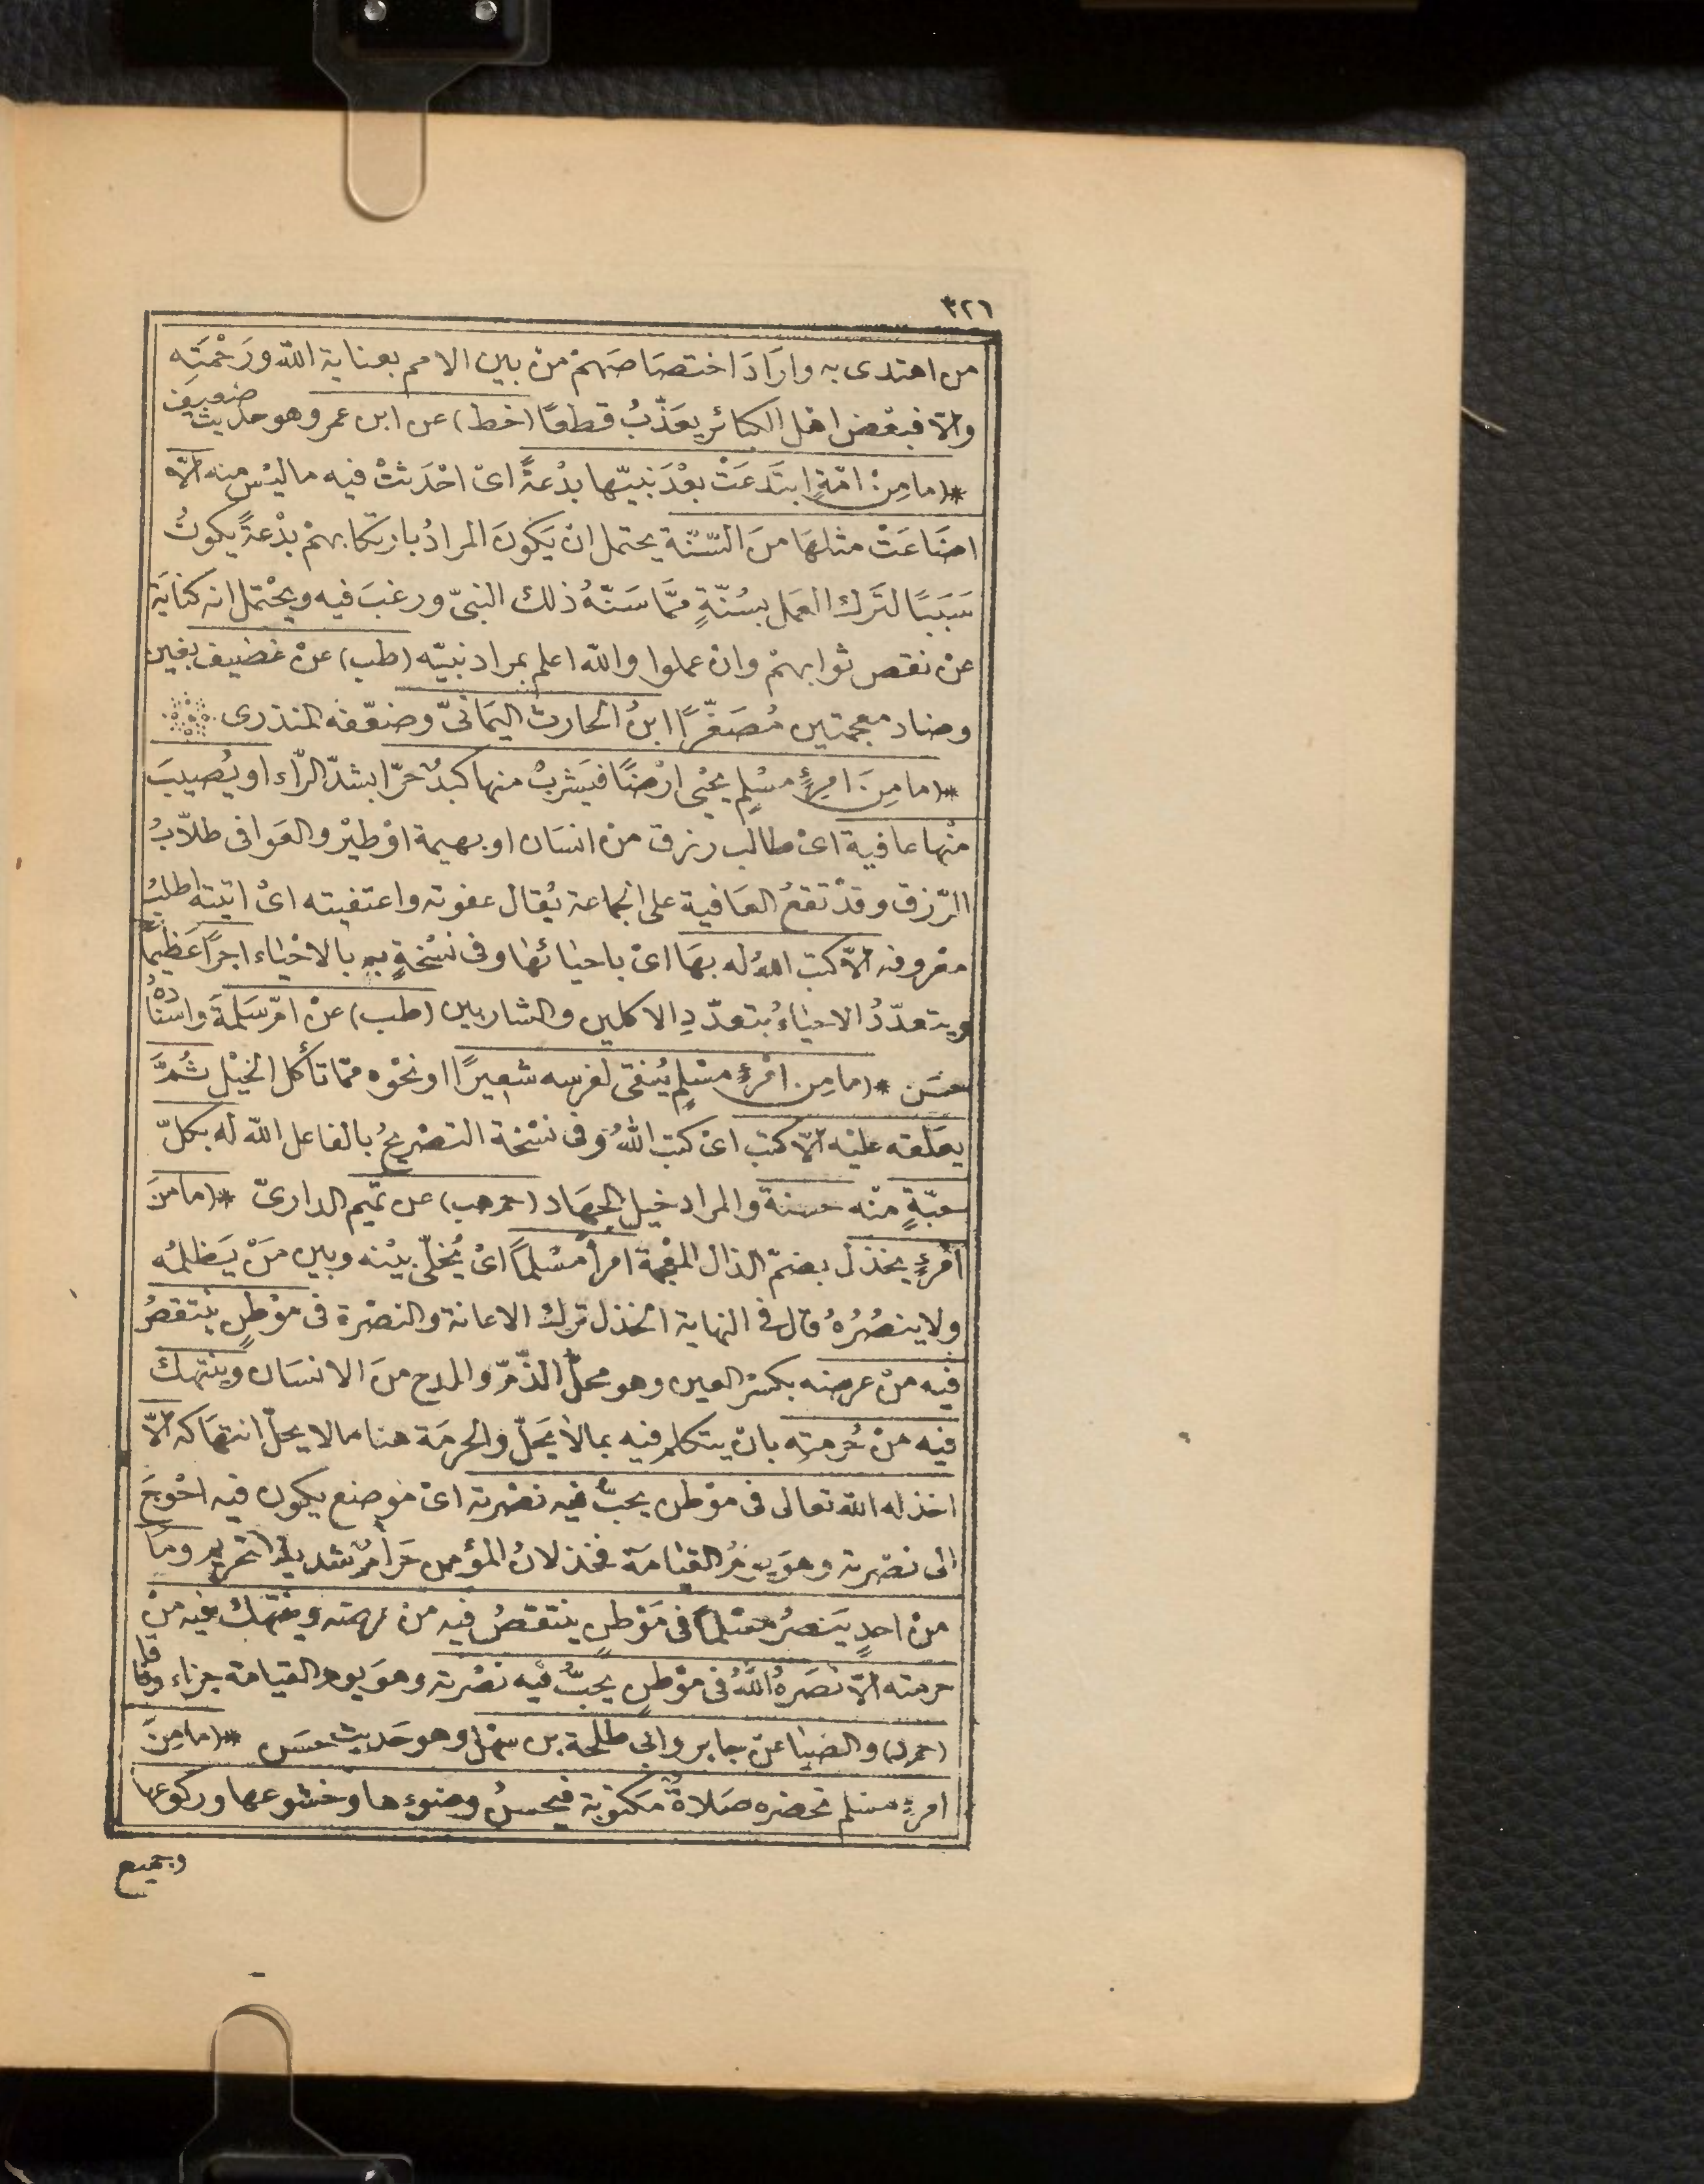 ٣٢٦
من اهتدى به وارَادَ اختصَاصَهمْ منْ بين الامم بعناية الله ورَحْمَتِه
والّا فبعْض اهْل الكبائر يعَذّبُ قطعًا (خط) عن ابن عمر وهو حديث ضعيف
*(ما مِنْ امّةٍ ابتَدعَتْ بعْدَ نبيّها بدْعةً اىْ احْدَثتْ فيه ما ليْس منه الّا
اضَاعَتْ مثلهَا منَ السّنّة يحتمل انْ يَكونَ المرادُ بارتكابهمْ بدْعةً يكونُ
سَبَبًا لتَرك العمَل بسُنّةٍ ممَّا سَنّهُ ذلك النبىّ ورغبَ فيه ويحْتمل انه كنايَة
عنْ نقص ثوابهمْ وانْ عملوا والله اعلم بمراد نبيّه (طب) عنْ غضيف بغين
وضاد معجمتين مُصَغّرًا ابنُ الحارث اليمَانىّ وضعّفه المنذرى
*(ما مِنَ امرِئٍ مسْلِمٍ يحْيى ارْضًا فيَشربُ منها كبدٌ حرّا بشدّ الرّاء او يُصيبَ
منْها عافية اىْ طالب رزق منْ انسَان او بهيمة اوْ طيْر والعَوافى طلّابُ
الرّزق وقدْ تقعُ العَافية على الجماعة يُقال عفوته واعتفيته اىْ اتيته اطلبُ
معْروفه الّا كتب اللهُ له بهَا اىْ باحيائها وفى نسْخةٍ به بالاحْياء اجرًا عَظيمًا
ويتعدّدُ الاحيَاءُ بتعدّدِ الاكلين والشاربين (طب) عنْ امّ سَلمَةَ واسْنادُهُ
حسَن *(ما مِن امْرئٍ مسْلمٍ يُنقى لفرسه شعيرًا اونحْوه ممّا تأكل الخيْل ثمَّ
يعَلقه عليْه الّا كتب اىْ كتب اللهُ وفى نسْخة التصْريحُ بالفاعل الله له بكلّ
حبّةٍ منْه حسنة والمراد خيل الجهاد (حم هب) عن تميم الدارىّ *(ما منَ
امْرئٍ يخذل بضمّ الذال المعْجمة امرأ مُسْلمًا اىْ يُخلّى بيْنه وبين مَنْ يَظلمُه
ولا ينصُرُهُ قال فى النهاية الخذل ترك الاعانة والنصْرة فى موْطنٍ ينْتقصُ
فيْه منْ عرضه بكسْر العين وهو محلّ الذّمّ والمدح منَ الانسَان وينتهك
فيْه منْ حُرمتِه بانْ يتكلم فيْه بما لا يَحلّ والحرمَة هنا ما لا يحلّ انتهَاكه الّا
اخذله الله تعالى فى موْطن يحبّ فيه نصْرته اىْ موضع يكون فيْه احْوجَ
الى نصْرته وهوَ يومُ القيامَة فخذلانُ المؤمن حَرامٌ شديد التحريم ومَا
منْ احدٍ يَنصرُ مسْلمًا فى مَوْطنٍ ينتقصُ فيْه منْ عرضه وينتهك فيْه منْ
حرمته الّا نصَرهُ اللهُ فى موْطنٍ يحبُّ فيْه نصْرته وهوَ يوم القيامة جزاء وفاقا
(حم د) والضيا عنْ جابر وابى طلحة بن سهْل وهو حَديث حسَن *(ما منَ
امرئٍ مسْلم تحْضره صَلاةٌ مكتوبة فيحسنُ وضوءها وخشوعها وركوعها
وجميع